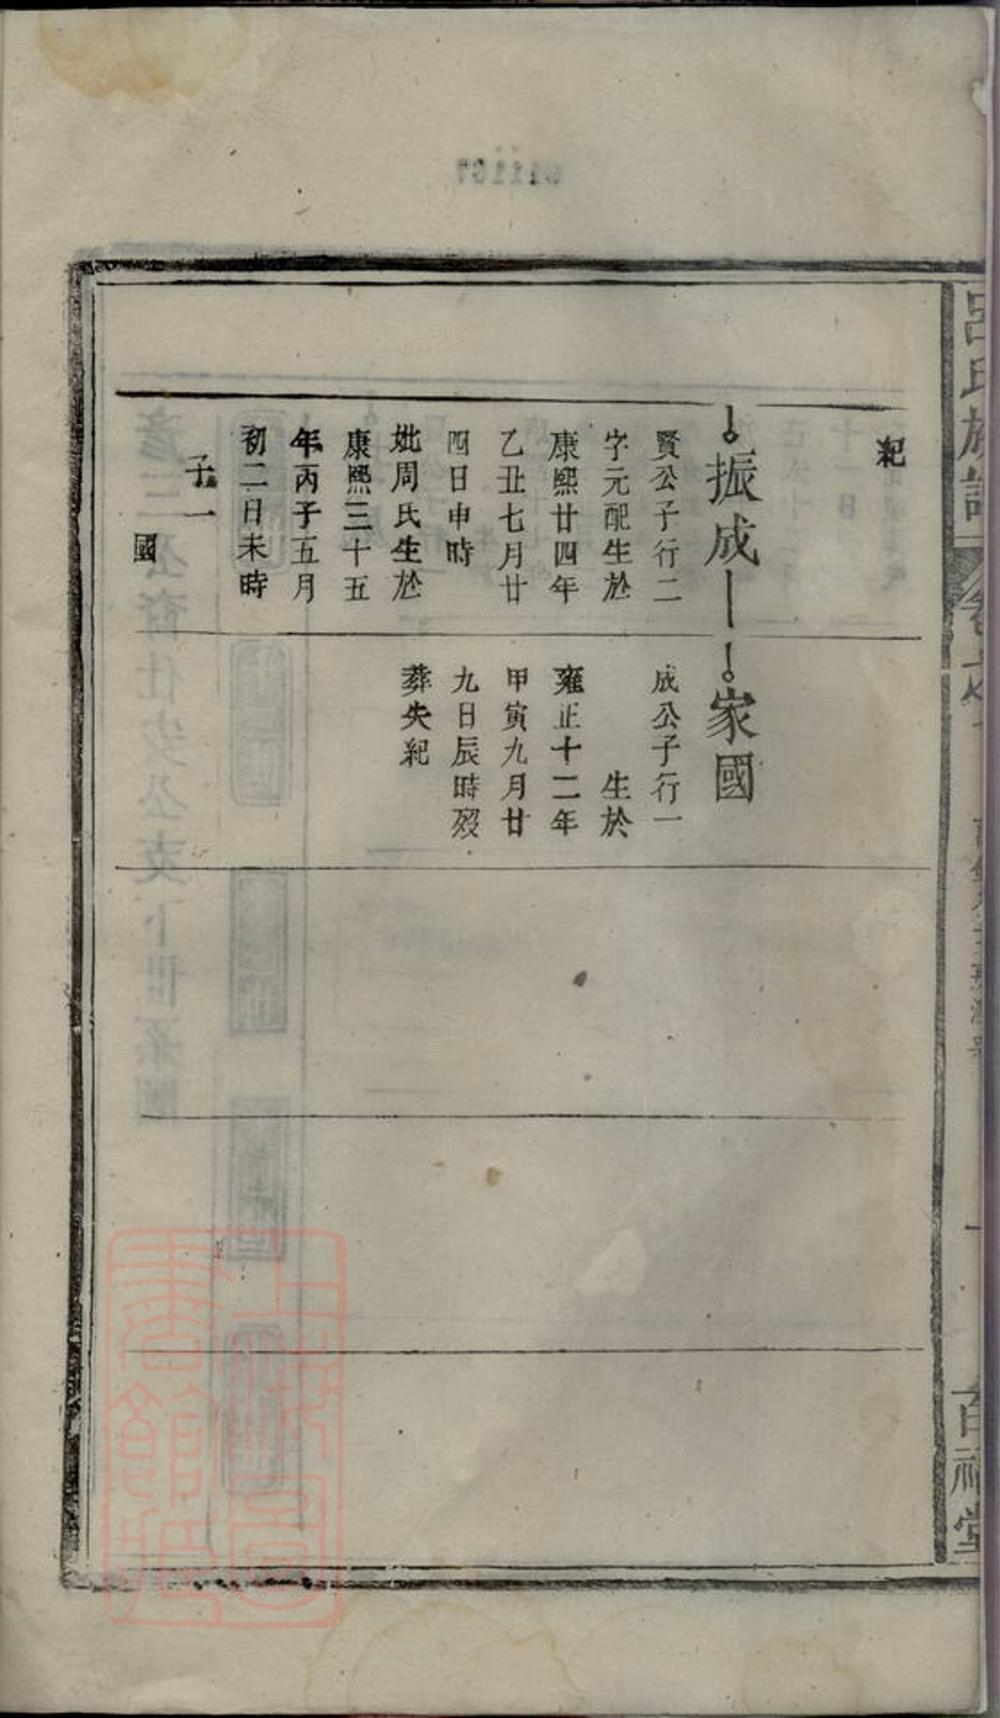 紀
振成
賢公子行二
字元配生於
康熙廿四年
乙丑七月廿
四日申時
妣周氏生於
康熙三十五
年丙子五月
初二日未時
子一
國
家國
成公子行一
生於
雍正十二年
甲寅九月廿
九日辰時歿
葬失紀
呂氏族譜
百福堂
上海圖書館藏